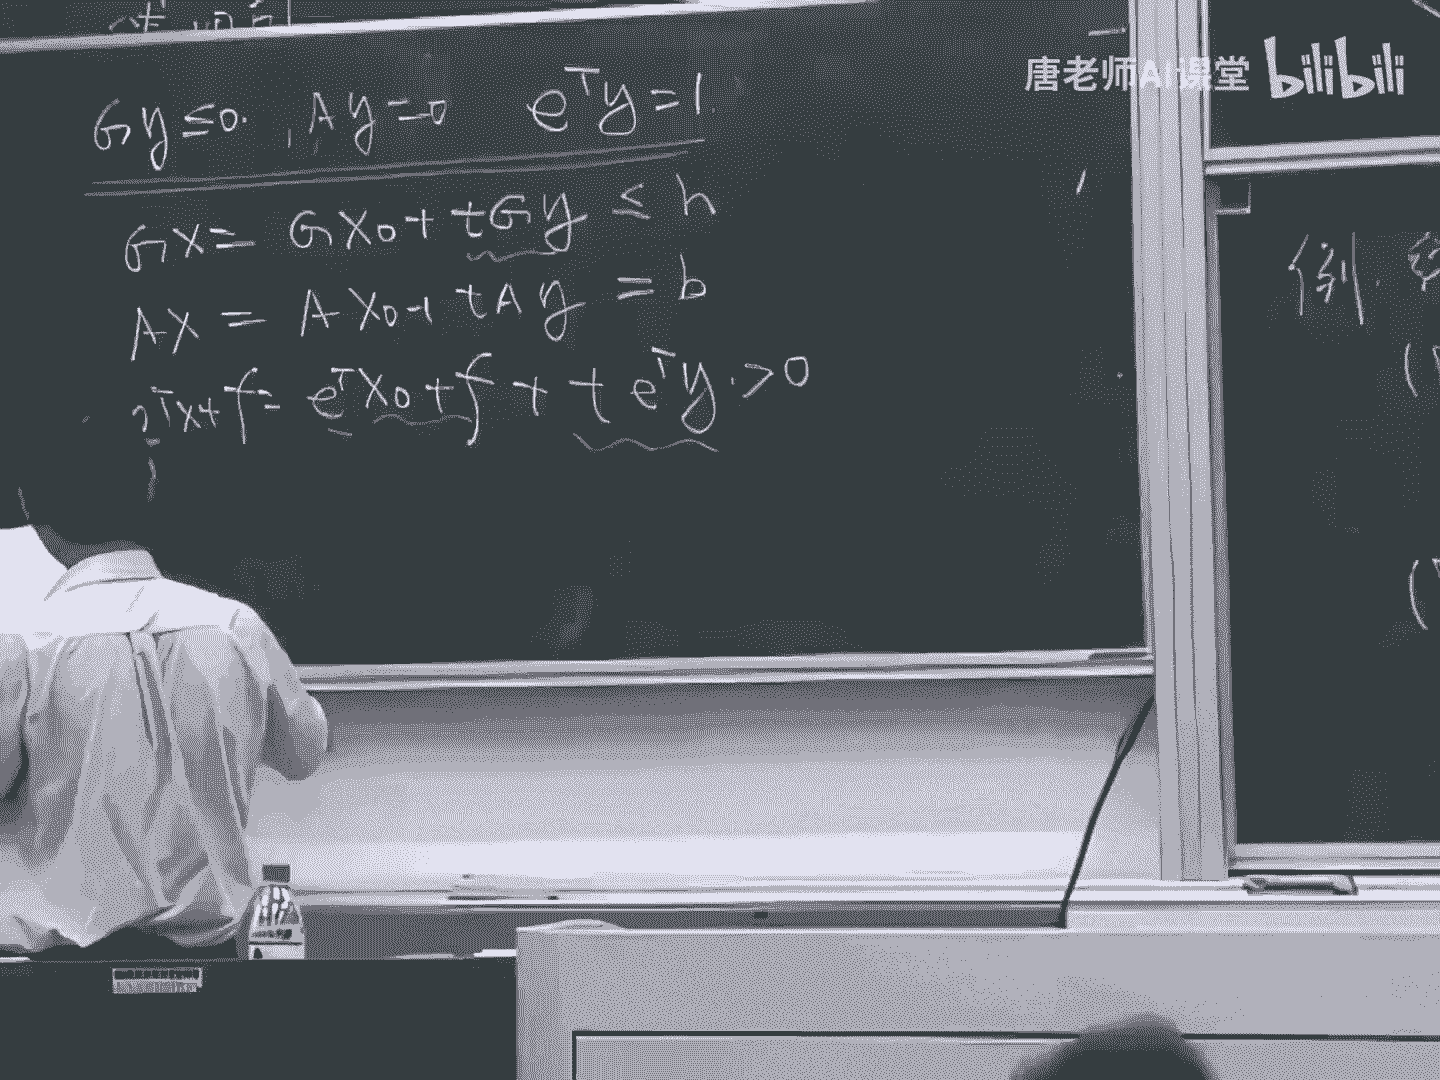 唐老师AI课堂 bilibili
Gy≤0. , Ay=0 eᵀy=1.
Gx= Gx₀+ tGy ≤ h
Ax = Ax₀+ tAy = b
ᵀx+f= eᵀx₀+f + t eᵀy.>0
例.